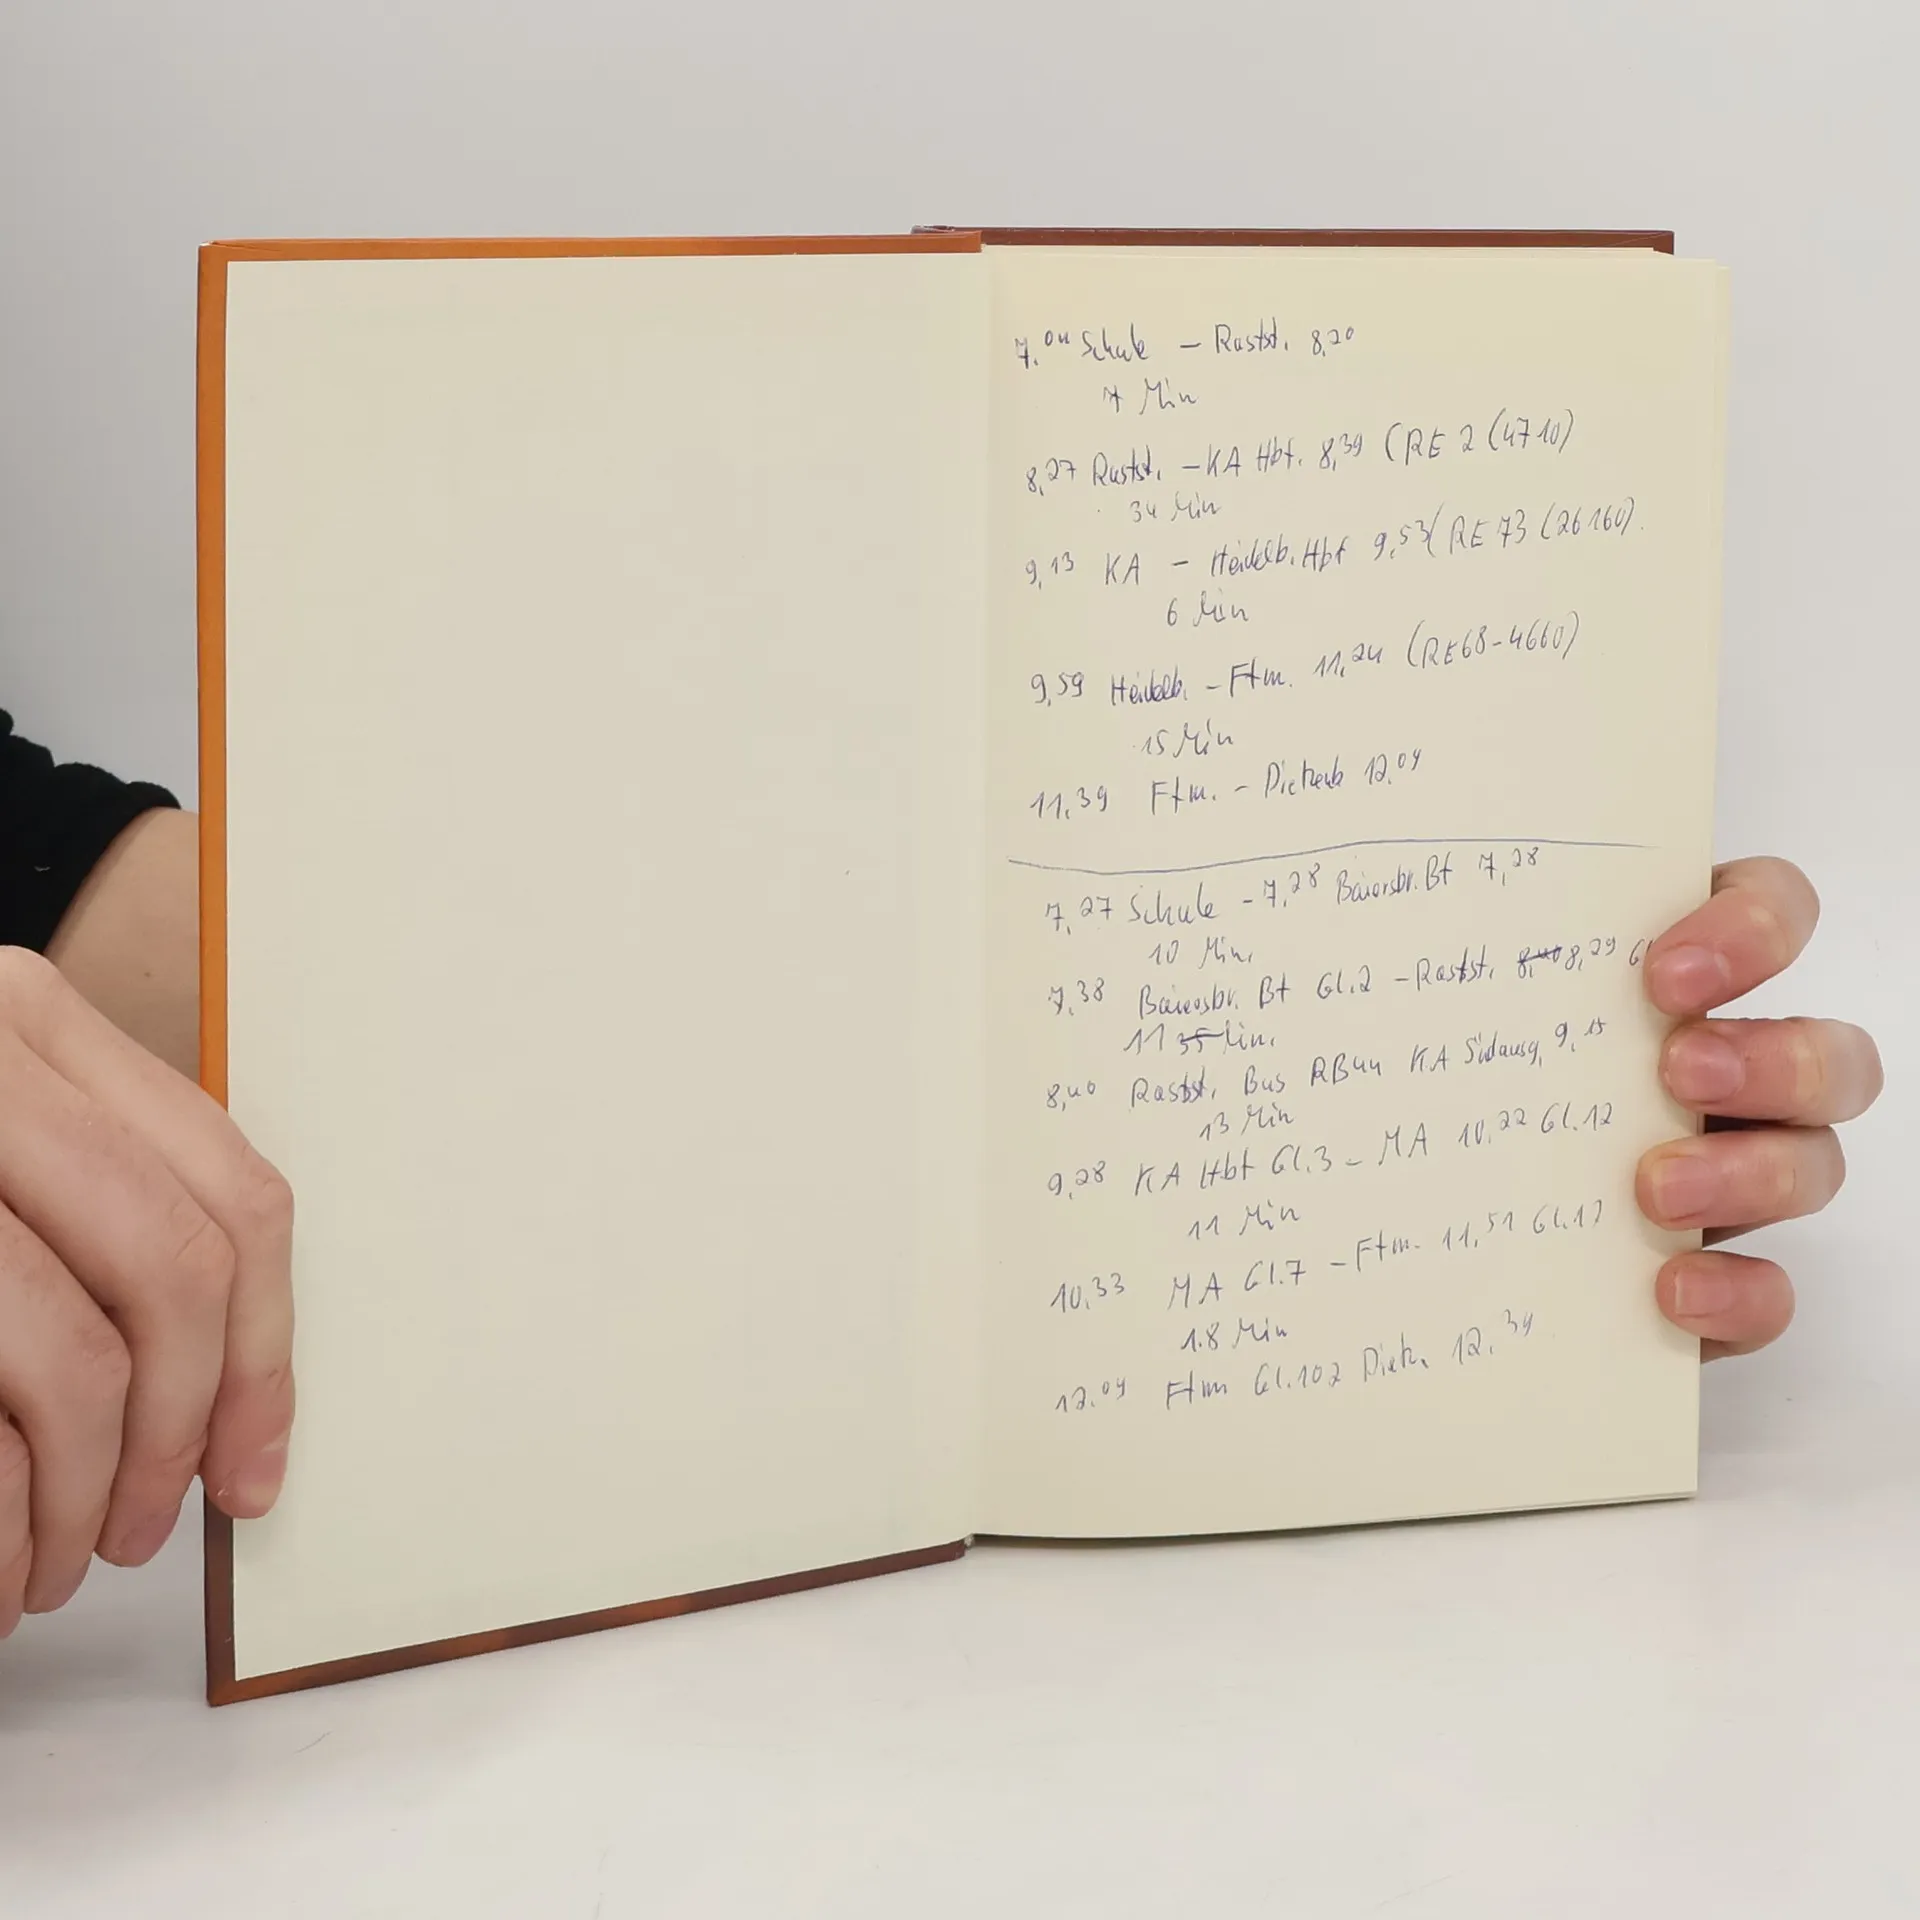 7.04 Schule – Rastst. 8,20
7 Min
8,27 Rastst. – KA Hbf. 8,39 (RE 2 (4710)
34 Min
9,13 KA – Heidelb. Hbf 9,53 (RE 73 (26160).
6 Min
9,59 Heidelb. – Ffm. 11,24 (RE68-4660)
15 Min
11,39 Ffm. – Dietzenb 12.04
7,27 Schule – 7,28 Baiersbr. Bf 7,28
10 Min.
7,38 Baiersbr. Bf Gl.2 – Rastst. 8,40 8,29 Gl
11 35 Min.
8,40 Rastst. Bus RB44 KA Südausg, 9,15
13 Min
9,28 KA Hbf Gl.3 – MA 10,22 Gl.12
11 Min
10,33 MA Gl.7 – Ffm. 11,51 Gl.17
18 Min
12.09 Ffm Gl.102 Dietz. 12,34